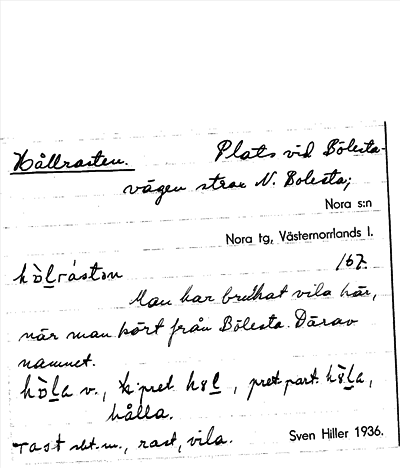 Hållrasten. Plats vid Bölesta-
vägen strax N. Bolesta;
Nora s:n
Nora tg, Västernorrlands l.
167.
Man har brukat vila här,
när man kört från Bölesta. Därav
namnet.
v., pret. , pret part.
hålla.
rast sbt. m., rast, vila. Sven Hiller 1936.